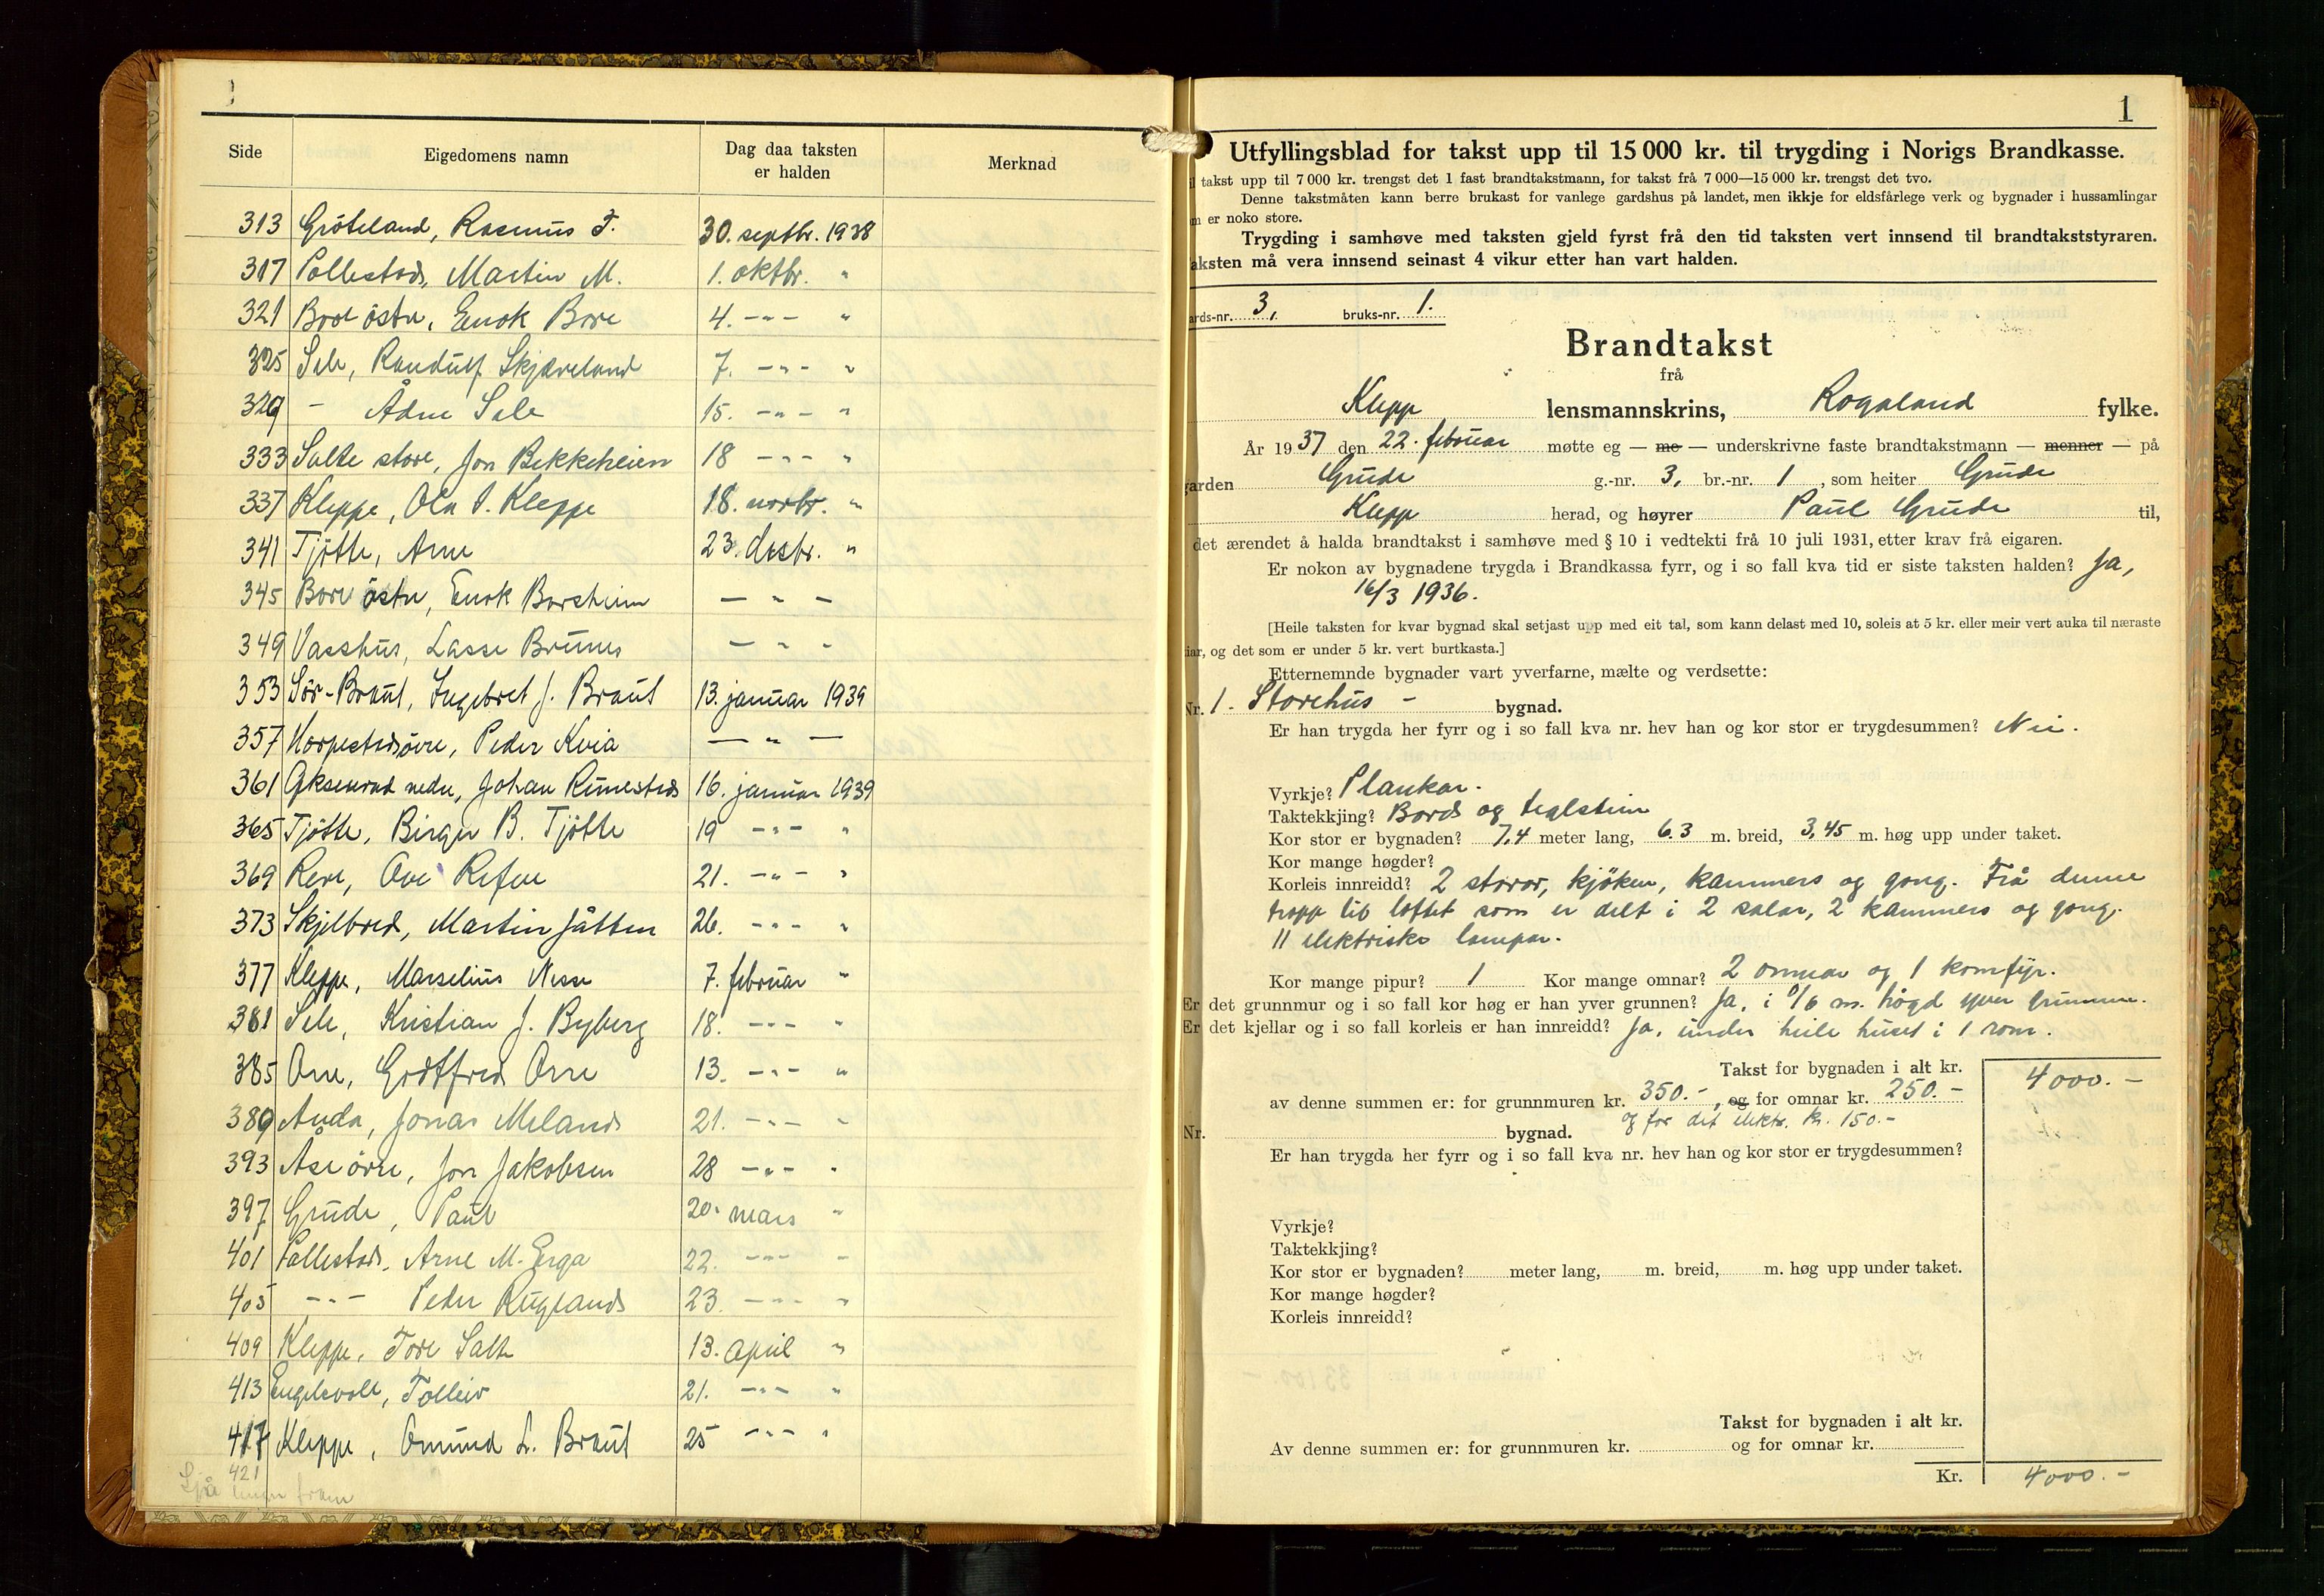 Side Eigedomens namn Dag daa taksten er halden Merknad
313 Gröteland, Rasmus T. 30. septbr. 1938
317 Pollestad, Martin M. 1. oktbr. "
321 Bore östre, Enok Bore 4. -"- "
325 Sele, Randulf Skjæveland 7. -"- "
329 - Ådne Sele 15. -"- "
333 Salte store, Jon Bekkeheien 18 -"- "
337 Kleppe, Ola S. Kleppe 18. novbr. "
341 Tjötte, Arne 23. desbr. "
345 Bore östre, Enok Borsheim - " -
349 Vasshus, Lasse Brunes - " -
353 Sör-Braut, Ingebret J. Braut 13. januar 1939
357 Horpestad övre, Peder Kvia - " -
361 Öksnevad nedre, Johan Rimestad 16. januar 1939
365 Tjötte, Birger B. Tjötte 19 -"- "
369 Reve, Ove Refve 21. -"- "
373 Skjelbred, Martin Jåtten 26. -"- "
377 Kleppe, Marselius Nesse 7. februar "
381 Sele, Kristian J. Byberg 18. -"- "
385 Orre, Godtfred Orre 13. -"- "
389 Anda, Jonas Meland 21. -"- "
393 Åse övre, Jon Jakobsen 28 -"- "
397 Grude, Paul 20. mars "
401 Pollestad, Arne M. Erga 22. -"- "
405 -"- Peder Rugland 23. -"- "
409 Kleppe, Tore Salte 13. april "
413 Engelsvoll, Tolleiv 21. -"- "
417 Kleppe, Omund L. Braut 25 -"- "
421
Sjå lenger fram
1
Utfyllingsblad for takst upp til 15 000 kr. til trygding i Norigs Brandkasse.
il takst upp til 7 000 kr. trengst det 1 fast brandtakstmann, for takst frå 7 000—15 000 kr. trengst det tvo.
Denne takstmåten kann berre brukast for vanlege gardshus på landet, men ikkje for eldsfårlege verk og bygnader i hussamlingar
m er noko store.
Trygding i samhøve med taksten gjeld fyrst frå den tid taksten vert innsend til brandtakststyraren.
aksten må vera innsend seinast 4 vikur etter han vart halden.
ards-nr. 3, bruks-nr. 1.
Brandtakst
frå
Klepp lensmannskrins, Rogaland fylke.
År 1937 den 22. februar møtte eg — me — underskrivne faste brandtakstmann — menner — på
garden Grude g.-nr. 3, br.-nr. 1, som heiter Grude
Klepp herad, og høyrer Paul Grude til,
det ærendet å halda brandtakst i samhøve med § 10 i vedtekti frå 10 juli 1931, etter krav frå eigaren.
Er nokon av bygnadene trygda i Brandkassa fyrr, og i so fall kva tid er siste taksten halden? Ja,
16/3 1936.
[Heile taksten for kvar bygnad skal setjast upp med eit tal, som kann delast med 10, soleis at 5 kr. eller meir vert auka til næraste
iar, og det som er under 5 kr. vert burtkasta.]
Etternemnde bygnader vart yverfarne, mælte og verdsette:
Nr. 1. Storehus - bygnad.
Er han trygda her fyrr og i so fall kva nr. hev han og kor stor er trygdesummen? Nei.
Vyrkje? Plankar.
Taktekkjing? Bord og teglstein
Kor stor er bygnaden? 7,4 meter lang, 6.3 m. breid, 3,45 m. høg upp under taket.
Kor mange høgder?
Korleis innreidd? 2 stovor, kjöken, kammers og gong. Frå denne
tropp til loftet som er delt i 2 salar, 2 kammers og gong.
11 elektriske lampor.
Kor mange pipur? 1 Kor mange omnar? 2 omnar og 1 komfyr.
Er det grunnmur og i so fall kor høg er han yver grunnen? Ja, i 0/6 m. högd yver grunnen.
Er det kjellar og i so fall korleis er han innreidd? Ja, under heile huset i 1 rom.
Takst for bygnaden i alt kr. 4000.-
av denne summen er: for grunnmuren kr. 350.-, og for omnar kr. 250.-
og for det elektr. kr. 150.-
Nr. bygnad.
Er han trygda her fyrr og i so fall kva nr. hev han og kor stor er trygdesummen?
Vyrkje?
Taktekkjing?
Kor stor er bygnaden? meter lang, m. breid, m. høg upp under taket.
Kor mange høgder?
Korleis innreidd?
Takst for bygnaden i alt kr.
Av denne summen er: for grunnmuren kr. og for omnar kr.
Kr. 4000.-